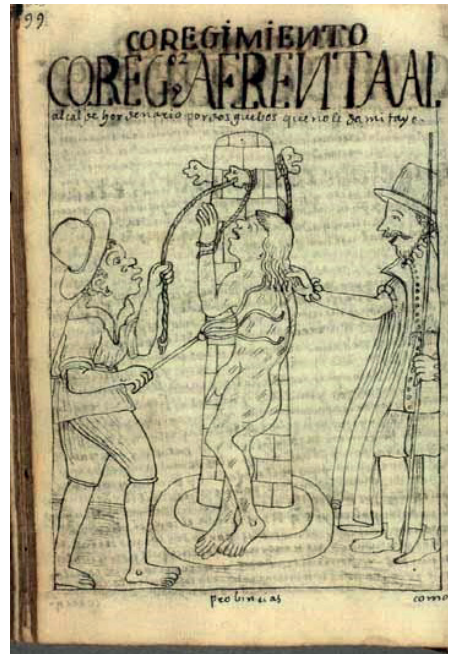 499
COREGIMIENTO
COREGᵒʳ AFRENTA AL
alcalde hordenario por dos guebos que no le da mitayo.
probincias
como